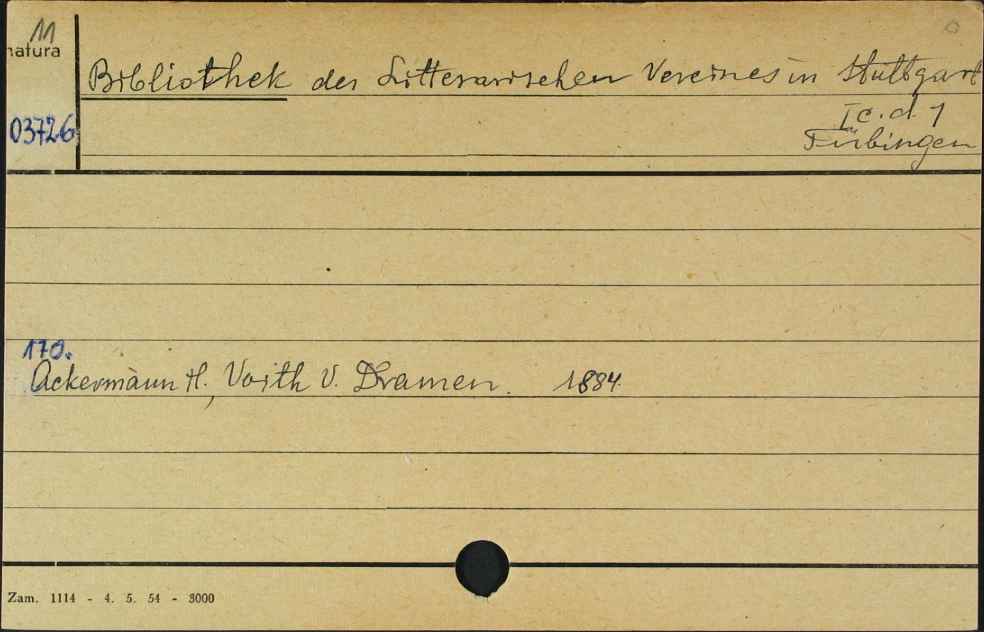 11
natura
Bibliothek des Litterarischen Vereines in Stuttgart
03726
I c. d. 1
Tübingen
170.
Ackermann H., Voith V. Dramen. 1884.
Zam. 1114 - 4. 5. 54 - 3000